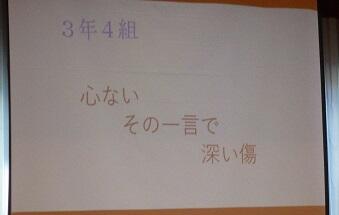 ３年４組
心ない
その一言で
深い傷